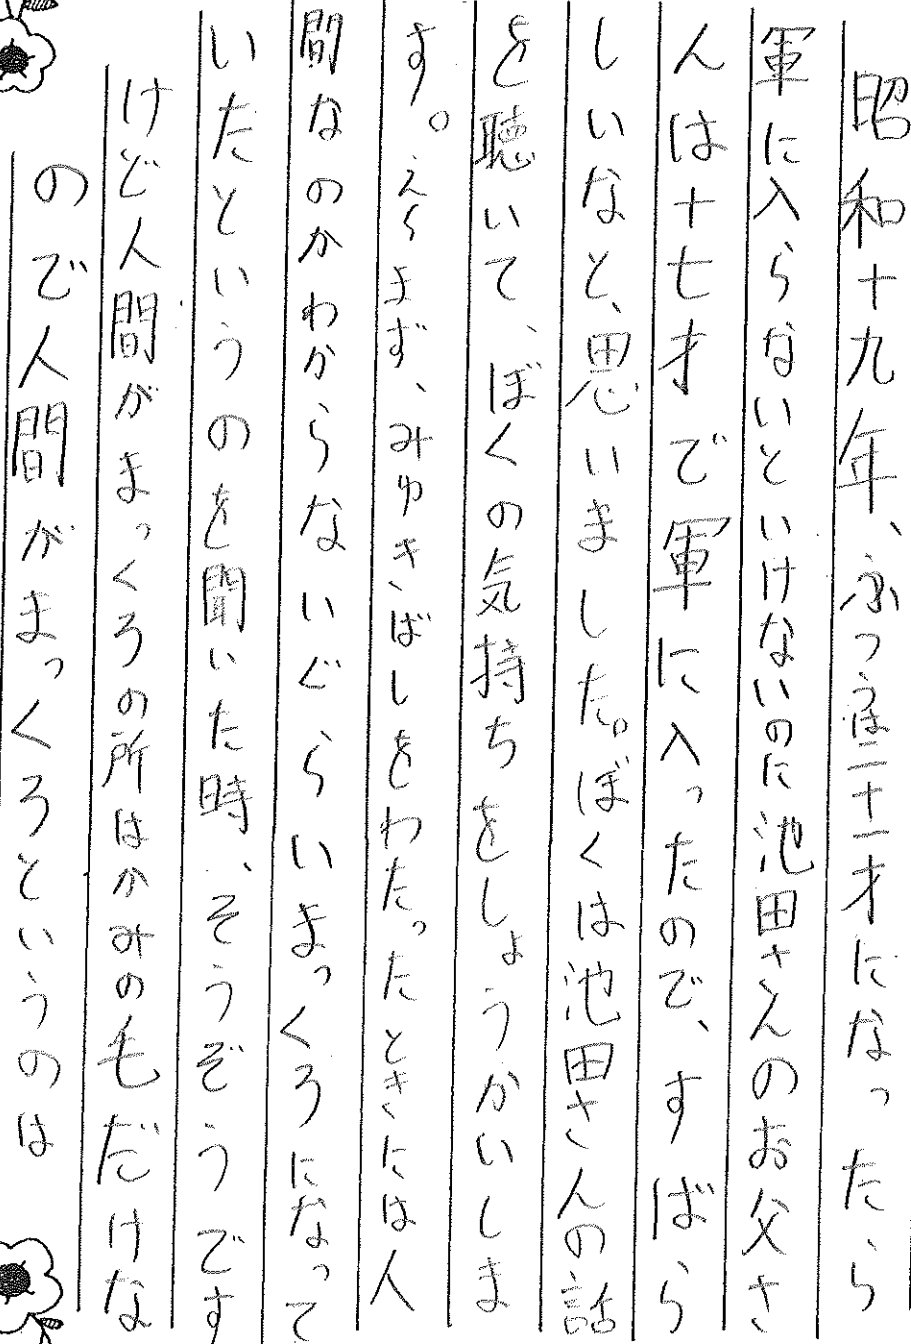 昭和十九年、ふつうは二十一才になったら
軍に入らないといけないのに池田さんのお父さ
んは十七才で軍に入ったので、すばら
しいなと、思いました。ぼくは池田さんの話
を聴いて、ぼくの気持ちをしょうかいしま
す。えーまず、みゆきばしをわたったときには人
間なのかわからないぐらいまっくろになって
いたというのを聞いた時、そうぞうです
けど人間がまっくろの所はかみの毛だけな
ので人間がまっくろというのは